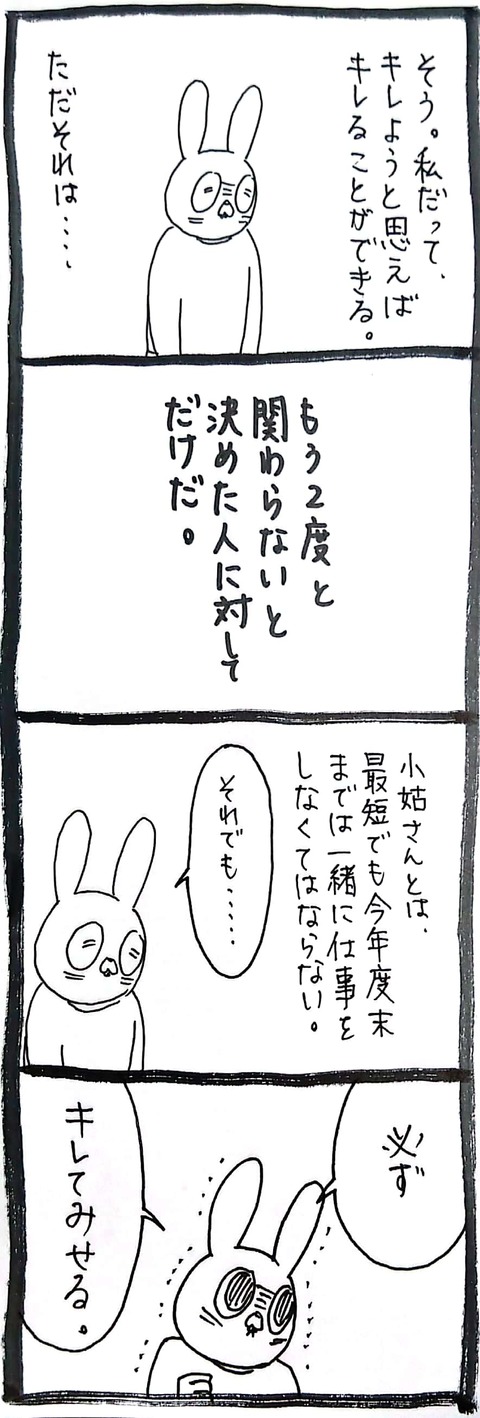 そう。私だって、
キレようと思えば
キレることができる。
ただそれは・・・・、
もう2度と
関わらないと
決めた人に対して
だけだ。
小姑さんとは、
最短でも今年度末
までは一緒に仕事を
しなくてはならない。
それでも・・・・・
必ず
キレてみせる。